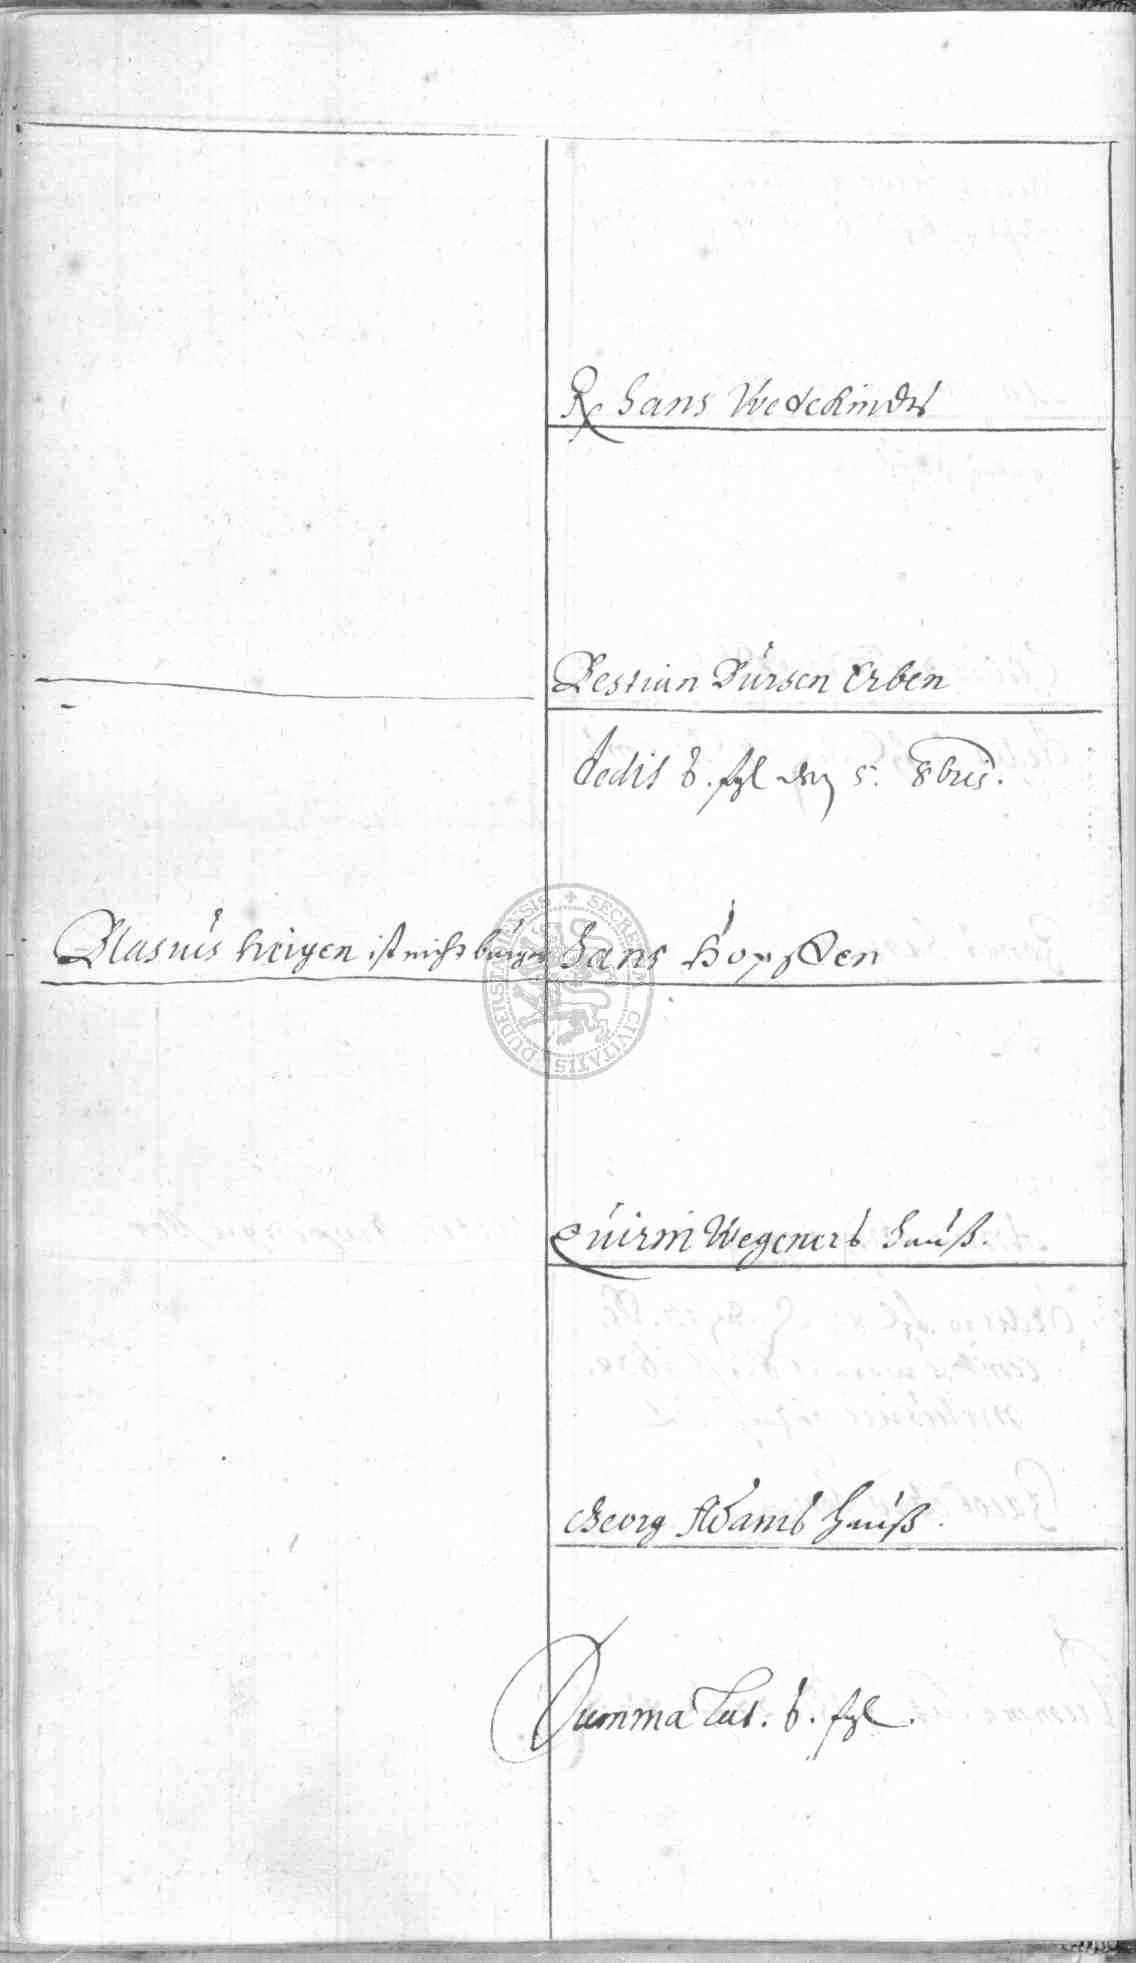 Hans Wedekindes
Bestian Bürsen Erben
dedit 6. ßgl den 5. 8bris.
Blasius heigen ist nicht burger
Hans Hopffen
Quirin Wegeners Hauß.
Georg Adams Hauß.
Summa Lat. 6. ßgl.
SECRETUM CIVITATIS DUDERSTADENSIS